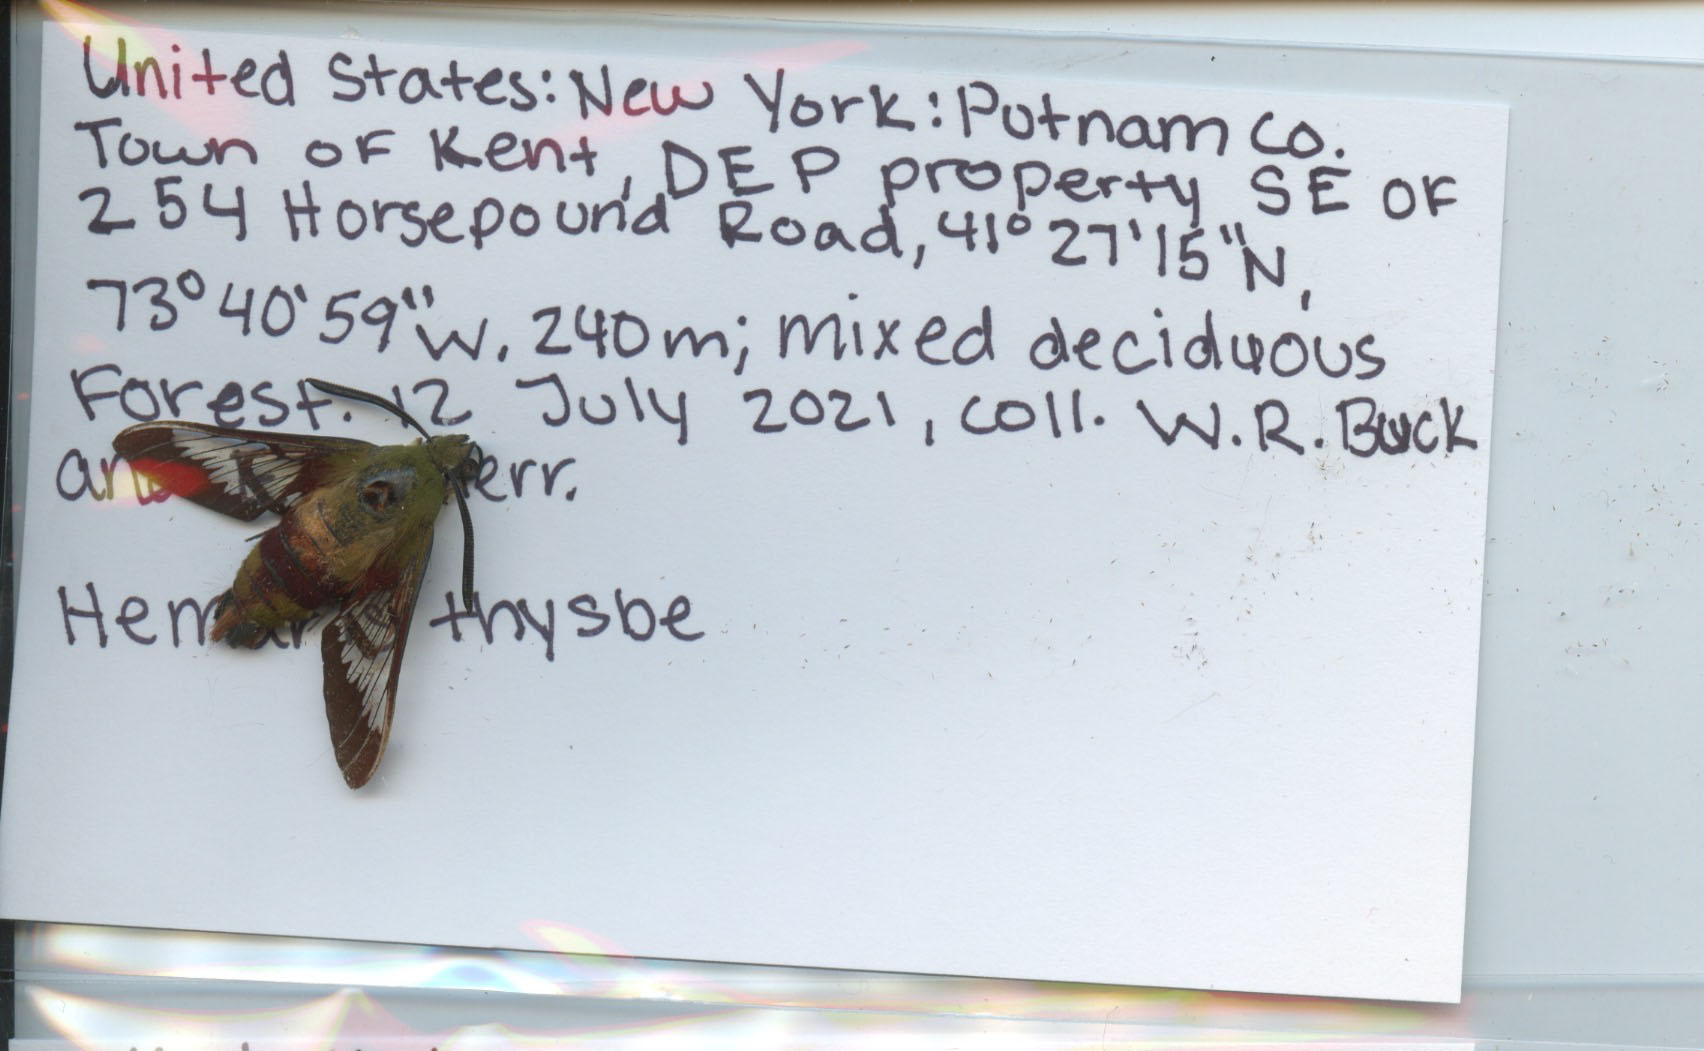 United States: New York: Putnam Co.
Town of Kent, DEP property SE of
254 Horsepound Road, 41° 27' 15" N,
73° 40' 59" W. 240 m; mixed deciduous
Forest. 12 July 2021, coll. W.R. Buck
and
thysbe